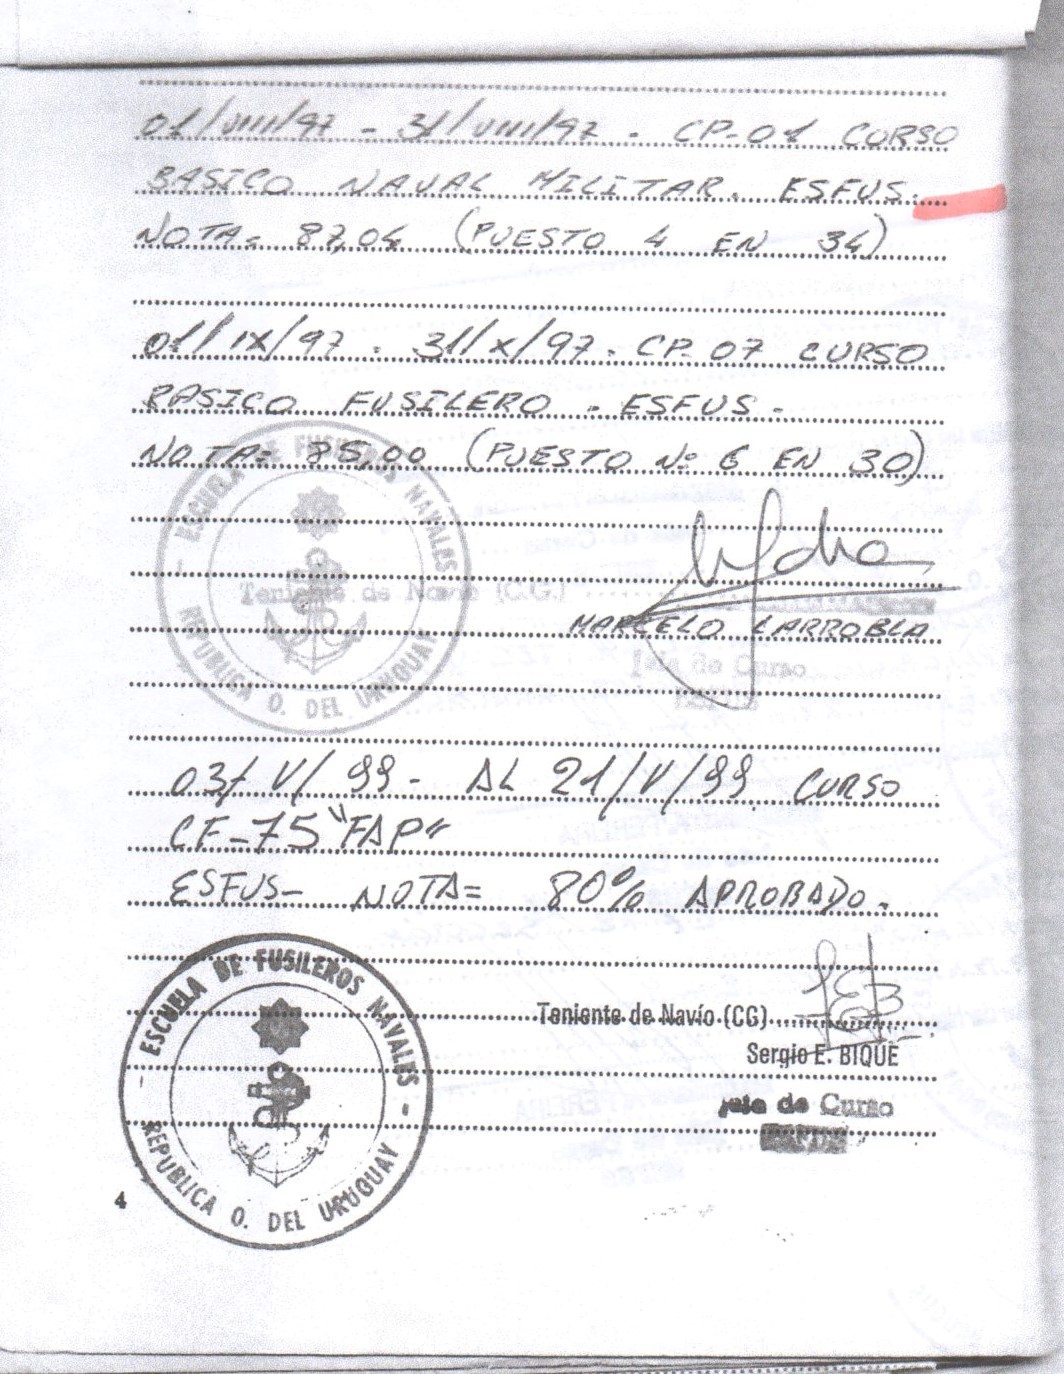 01/VIII/97 - 31/VIII/97 - CP-01 CURSO
BASICO NAVAL MILITAR. ESFUS.
NOTA= 87,04 (PUESTO 4 EN 34)
01/IX/97 - 31/X/97 - CP-07 CURSO
BASICO FUSILERO - ESFUS -
NOTA= 85,00 (PUESTO Nº 6 EN 30)
ESCUELA DE FUSILEROS NAVALES
REPUBLICA O. DEL URUGUAY
Teniente de Navío (C.G.)
MARCELO LARROBLA
Jefe de Curso
ESFUS
03/V/99 - AL 21/V/99 CURSO
CF-75 "FAP"
ESFUS- NOTA= 80% APROBADO.
- ESCUELA DE FUSILEROS NAVALES -
REPUBLICA O. DEL URUGUAY
Teniente de Navío (CG)
Sergio E. BIQUE
Jefe de Curso
4